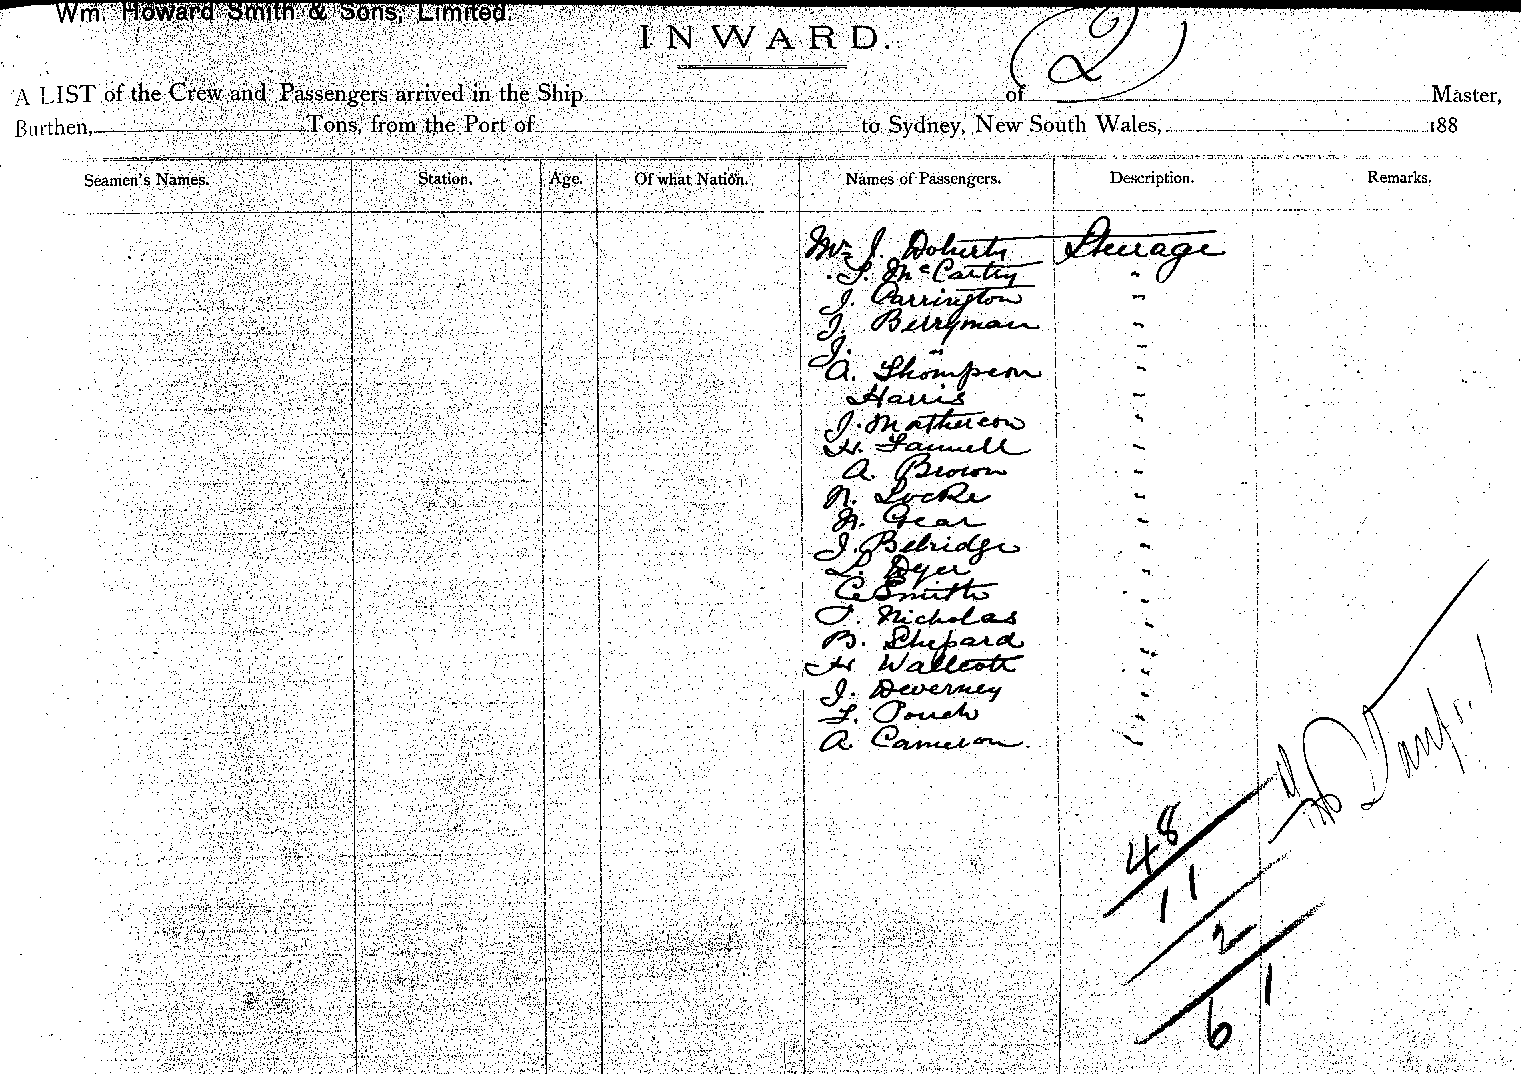 Wm. Howard Smith & Sons, Limited.
INWARD.
2
A LIST of the Crew and Passengers arrived in the Ship of Master,
Burthen, Tons, from the Port of to Sydney, New South Wales, 188
Seamen's Names. Station. Age. Of what Nation. Names of Passengers. Description. Remarks.
Mr J. Doherty Steerage
McCartey "
J. Parrington "
J. Berryman "
J. " "
A. Thompson "
Harris "
J. Matheson "
H. "
A. Brown "
N. Locke "
Gear "
J. Betridge "
L. Dyer "
C. Smith "
Nicholas "
B. Shepard "
H. Wallcott "
J. Deverney "
"
A. Cameron "
48
11
2
61